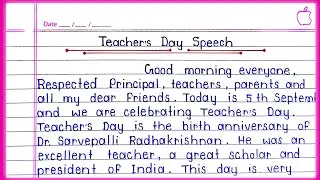 Date __/__/____
Teacher's Day Speech
Good morning everyone,
Respected Principal, teachers, parents and
all my dear friends. Today is 5th Septem
and we are celebrating Teacher's Day.
Teacher's Day is the birth anniversary of
Dr. Sarvepalli Radhakrishnan. He was an
excellent teacher, a great scholar and
president of India. This day is very